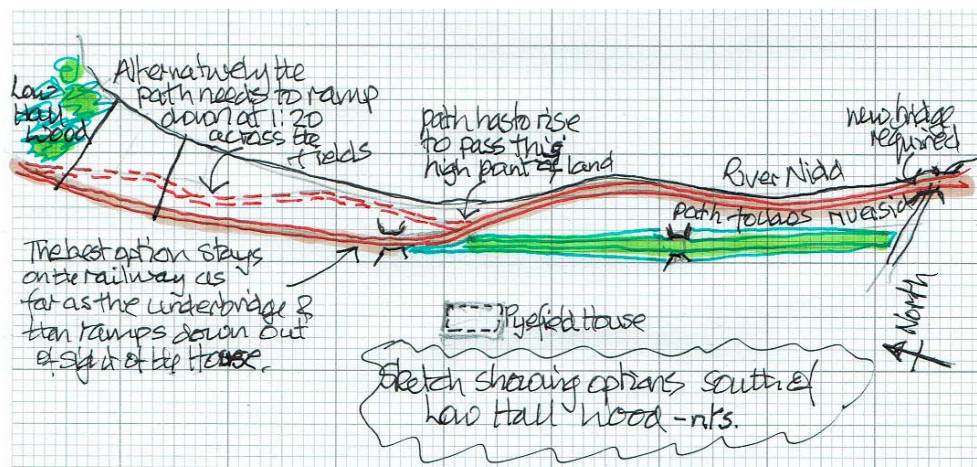 Low
Hall
Wood
Alternatively the
path needs to ramp
down at 1:20
across the
fields
path has to rise
to pass this
high point of land
new bridge
required
River Nidd
path follows riverside
The best option stays
on the railway as
far as the underbridge &
then ramps down out
of sight of the House.
Pyefield House
North
Sketch showing options south of
Low Hall Wood - nts.